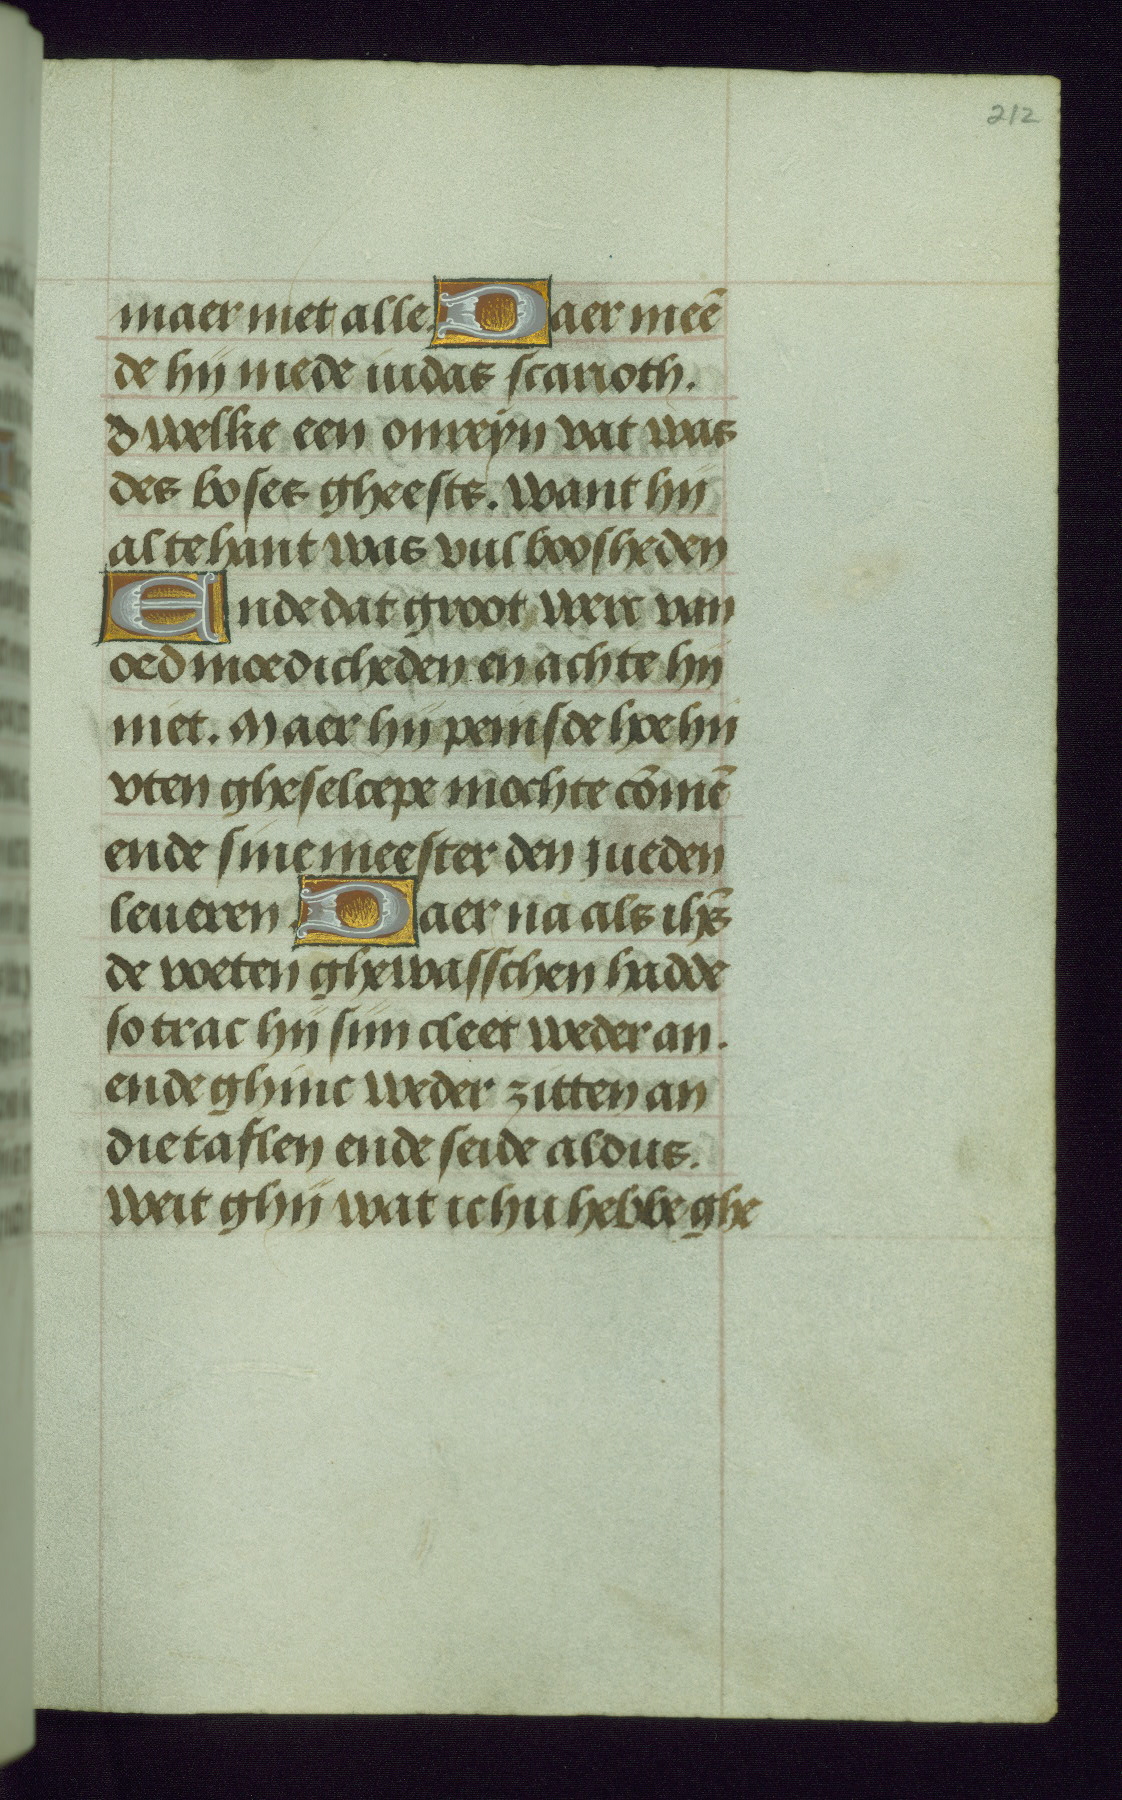 212
maer niet alle. Daer meē
de hij mede iudas scarioth.
d welke een onreyn vat was
des boses gheests. want hij
altehant was vul boosheden
Ende dat groot werc van
oedmoedicheden en achte hij
niet. Maer hij peinsde hoe hij
vten gheselcepe mochte cōmē
ende sine meester den jueden
leueren. Daer na als ihs̄
de voeten ghewasschen hadde
so trac hij sijn cleet weder an.
ende ghinc weder zitten an
die taflen ende seide aldus.
weit ghij wat ic hu hebbe ghe